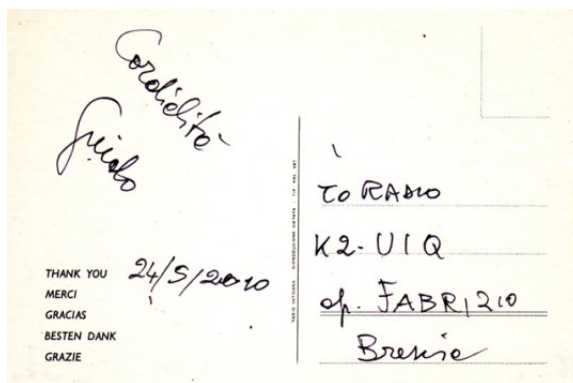 Cordialità
Guido
THANK YOU
24/5/2010
MERCI
GRACIAS
BESTEN DANK
GRAZIE
TO RADIO
K2-UIQ
op. FABRIZIO
Brescia